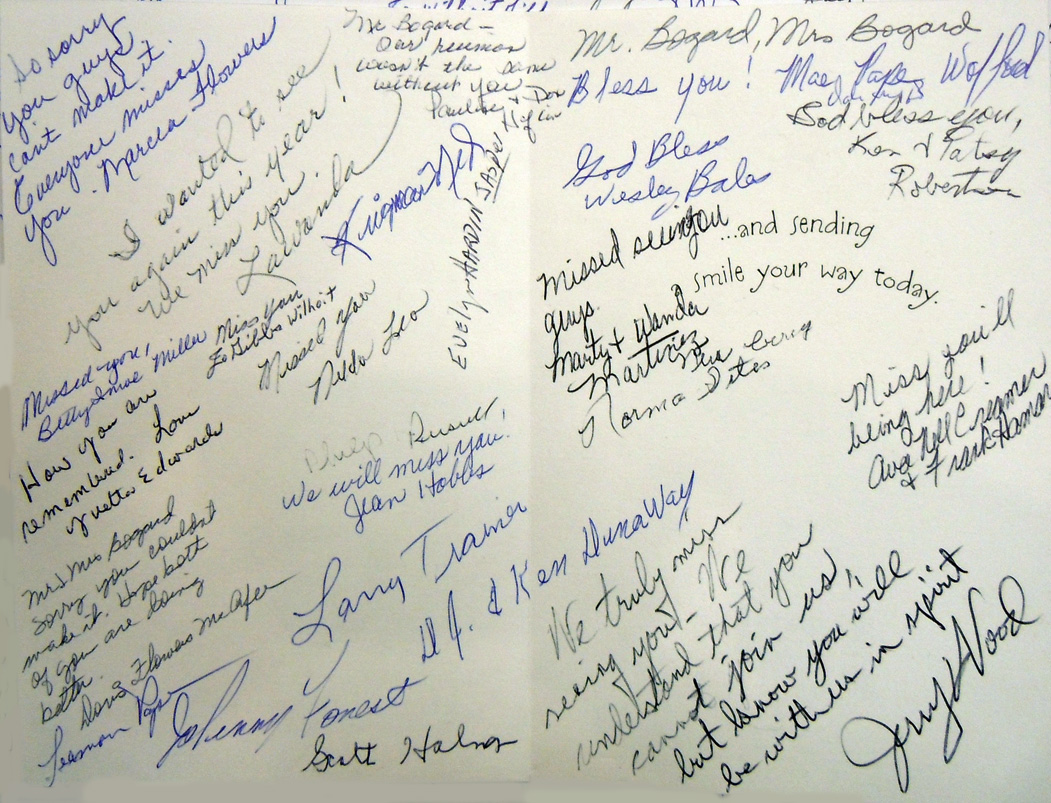 So sorry
you guys
can't make it.
Everyone misses
you. Marcia Flowers
I wanted to see
you again this year!
We miss you.
Lawanda
Mr. Bogard –
Our reunion
wasn't the same
without you
Pauline & Don
Heflin
Kingman
EVElyn HARDIN JASPER
Missed you,
Betty & Moe Miller
Miss You
Jo Gibbs Without
Missed you
Nelda Leo
How you are
remembered. Love
Yvetta Edwards
Russell
We will miss you!
Jean Hobbs
Mr & Mrs Bogard
Sorry you couldn't
make it. Hope both
of you are doing
better.
Doris Flowers McAfee
Leamon Pope
Larry Trainer
Johnny Forest
D.J. & Ken DunaWay
Scott
Mr. Bogard, Mrs Bogard
Bless you! Mae Pape Wofford
God bless you,
Ken & Patsy
Robertson
God Bless
Wesley Bales
Missed seeing you
guys.
Marty & Wanda
Martinez
...and sending
a smile your way today.
Norma Pites
Miss you'll
being here!
Ava Nell Creamer
& Frank Hamar
We truly miss
seeing you – We
understand that you
cannot join us,
but know you will
be with us in spirit
Jerry Wood